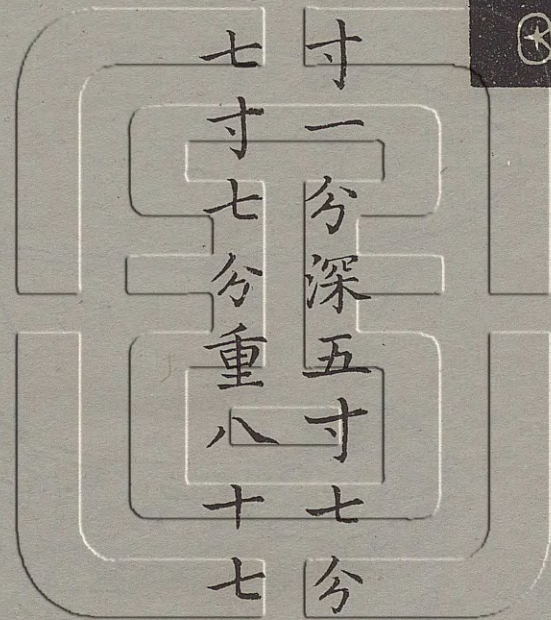 寸一分深五寸七分
七寸七分重八十七